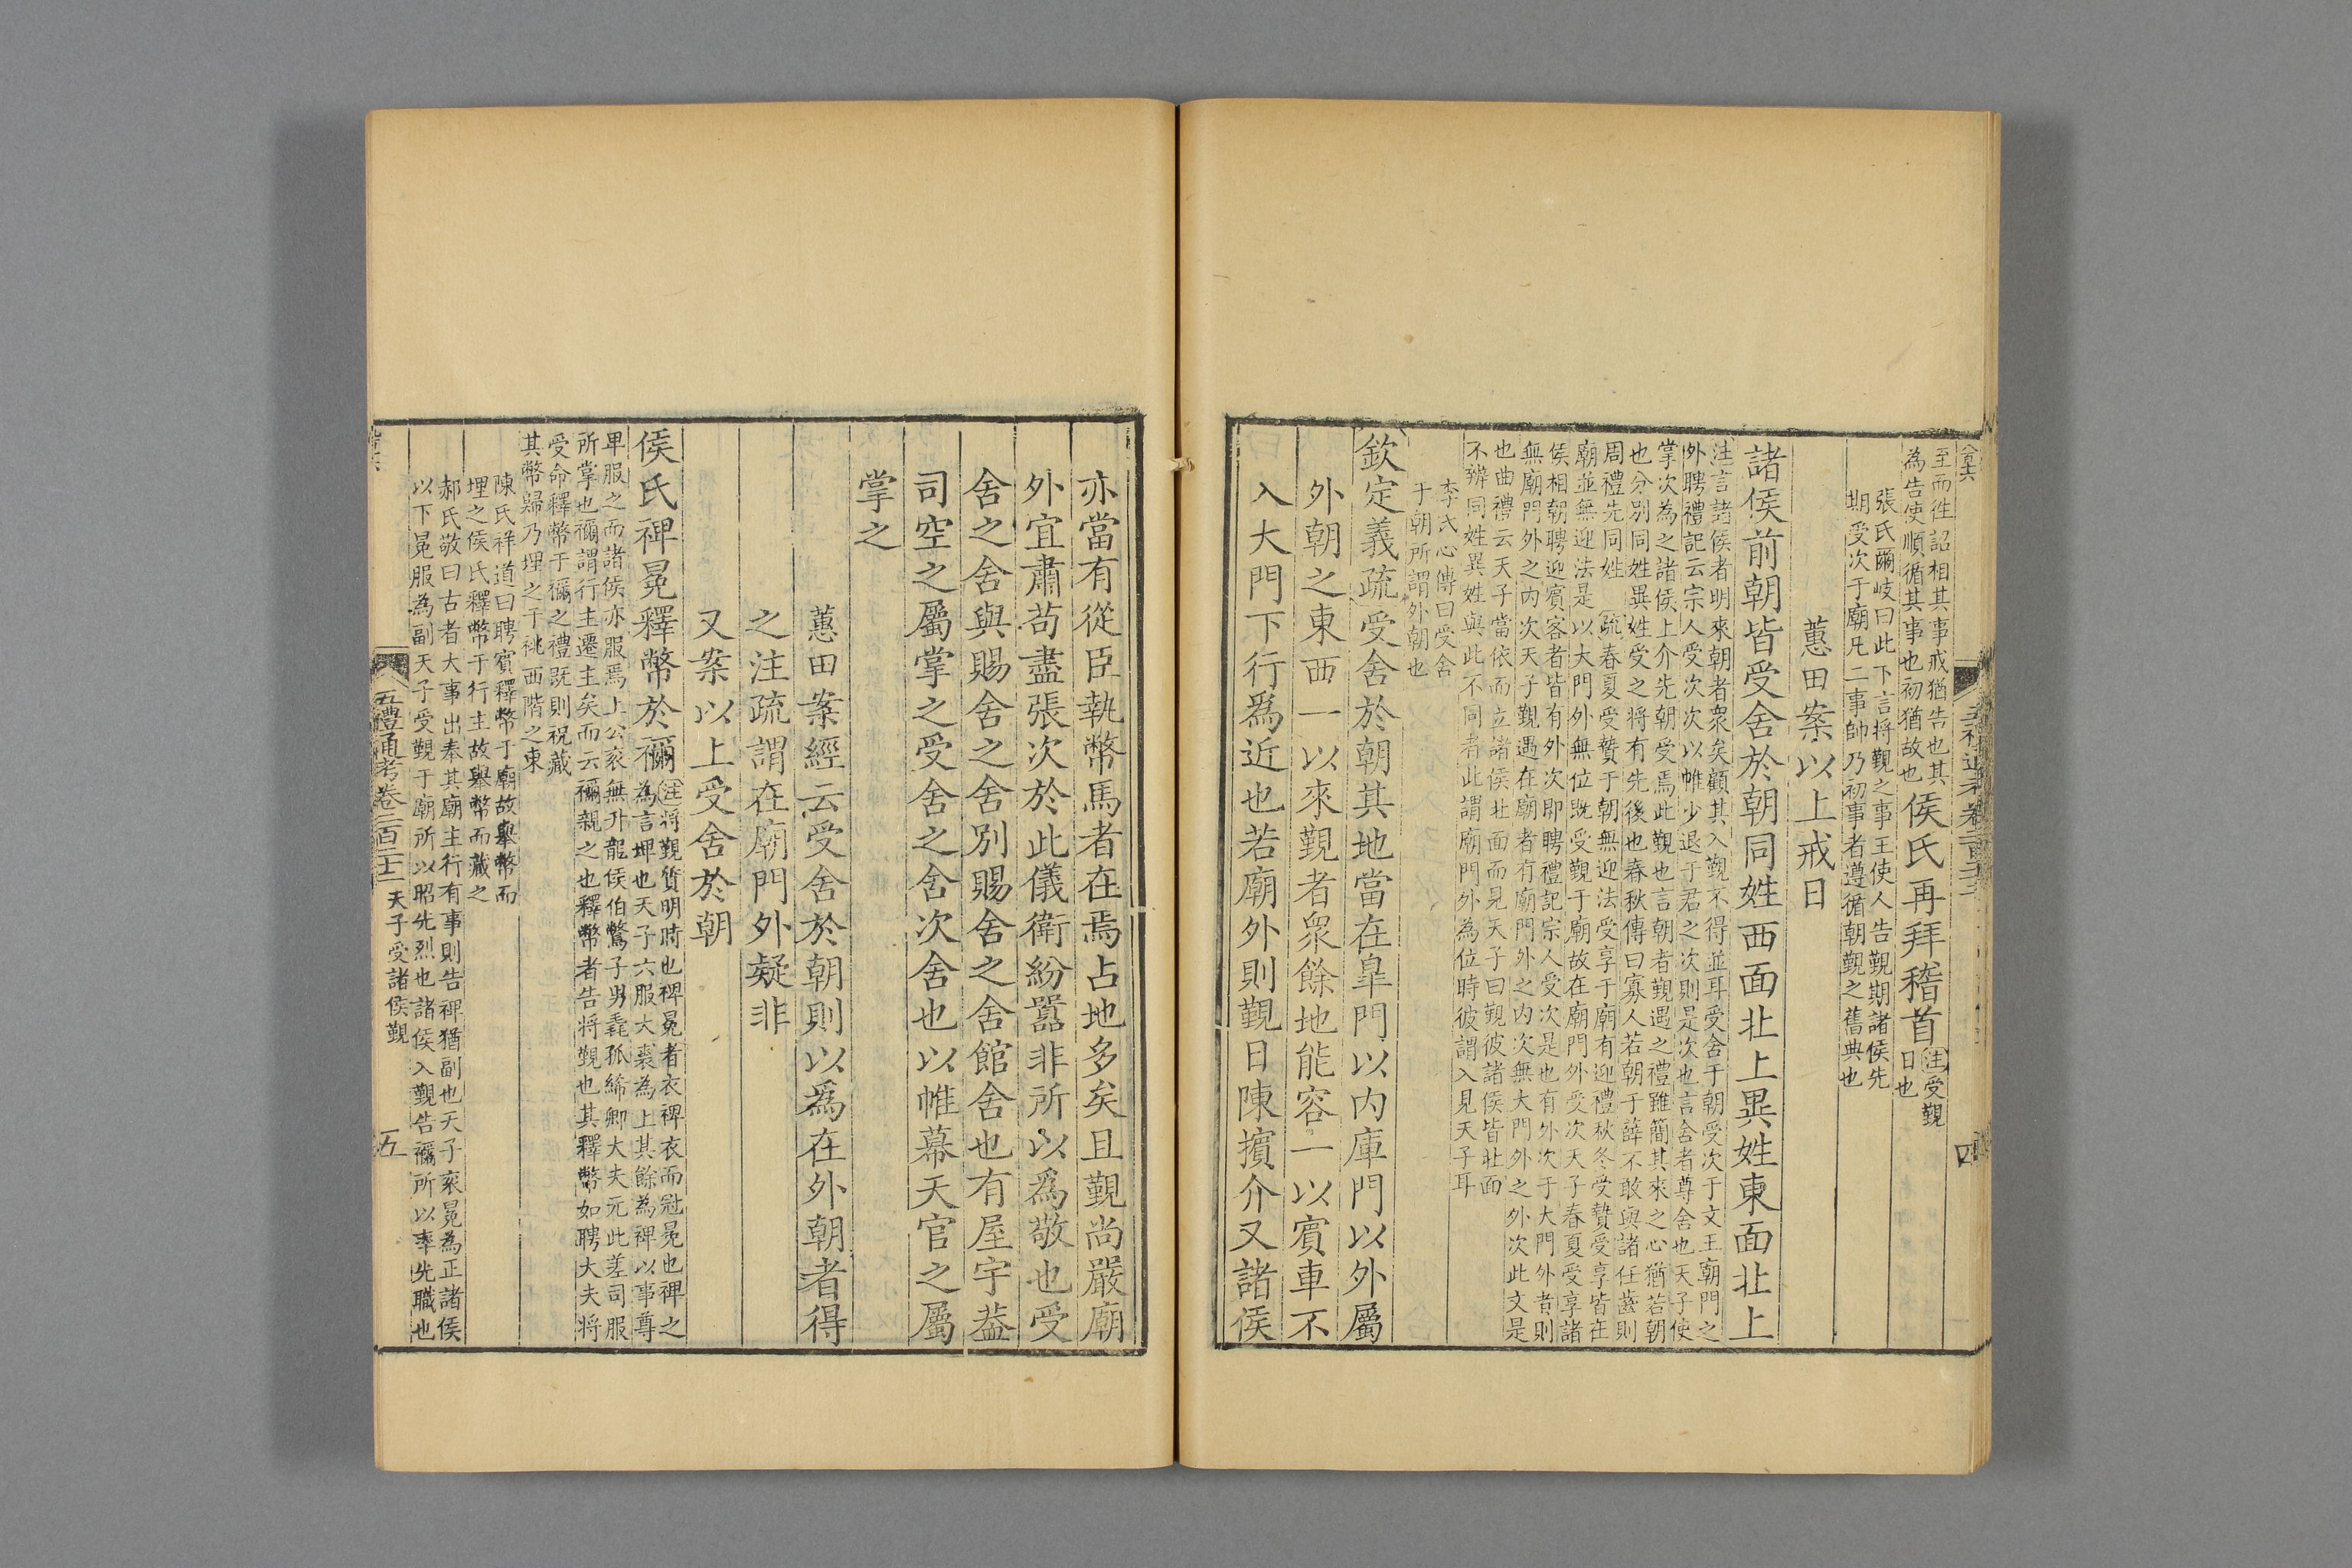 至而徃詔相其事戒猶告也其
為告使順循其事也初猶故也
侯氏再拜稽首
注受覲
日也
張氏爾岐曰此下言將覲之事王使人告覲期諸侯先
期受次于廟凡二事帥乃初事者遵循朝覲之舊典也
蕙田案以上戒日
諸侯前朝皆受舍於朝同姓西面北上異姓東面北上
注言諸侯者明來朝者衆矣顧其入覲不得並耳受舍于朝受次于文王廟門之
外聘禮記云宗人受次次以帷少退于君之次則是次也言舍者尊舍也天子使
掌次為之諸侯上介先朝受焉此覲也言朝者覲遇之禮雖簡其來之心猶若朝
也分别同姓異姓受之將有先後也春秋傳曰寡人若朝于薛不敢與諸任齒則
周禮先同姓 疏春夏受贄于朝無迎法受享于廟有迎禮秋冬受贄受享皆在
廟並無迎法是以大門外無位既受覲于廟故在廟門外受次天子春夏受享諸
侯相朝聘迎賓客者皆有外次即聘禮記宗人受次是也有外次于大門外者則
無廟門外之内次天子覲遇在廟者有廟門外之内次無大門外之外次此文是
也曲禮云天子當依而立諸侯北面而見天子曰覲彼諸侯皆北面
不辨同姓異姓與此不同者此謂廟門外為位時彼謂入見天子耳
李氏心傳曰受舍
于朝所謂外朝也
欽定義疏受舍於朝其地當在臯門以内庫門以外屬
外朝之東西一以來覲者衆餘地能容一以賓車不
入大門下行爲近也若廟外則覲日陳擯介又諸侯
亦當有從臣執幣馬者在焉占地多矣且覲尚嚴廟
外宜肅苟盡張次於此儀衛紛囂非所以爲敬也受
舍之舍與賜舍之舍别賜舍之舍館舍也有屋宇葢
司空之屬掌之受舍之舍次舍也以帷幕天官之屬
掌之
蕙田案經云受舍於朝則以爲在外朝者得
之注疏謂在廟門外疑非
又案以上受舍於朝
侯氏裨冕釋幣於禰
注將覲質明時也裨冕者衣裨衣而冠冕也裨之
為言埤也天子六服大裘為上其餘為裨以事尊
卑服之而諸侯亦服焉上公衮無升龍侯伯鷩子男毳孤絺卿大夫元此差司服
所掌也禰謂行主遷主矣而云禰親之也釋幣者告將覲也其釋幣如聘大夫將
受命釋幣于禰之禮既則祝藏
其幣歸乃埋之于祧西階之東
陳氏祥道曰聘賓釋幣于廟故舉幣而
埋之侯氏釋幣于行主故舉幣而藏之
郝氏敬曰古者大事出奉其廟主行有事則告裨猶副也天子衮冕為正諸侯
以下冕服為副天子受覲于廟所以昭先烈也諸侯入覲告禰所以率先職也
五禮通考卷二百二十 天子受諸侯覲
五